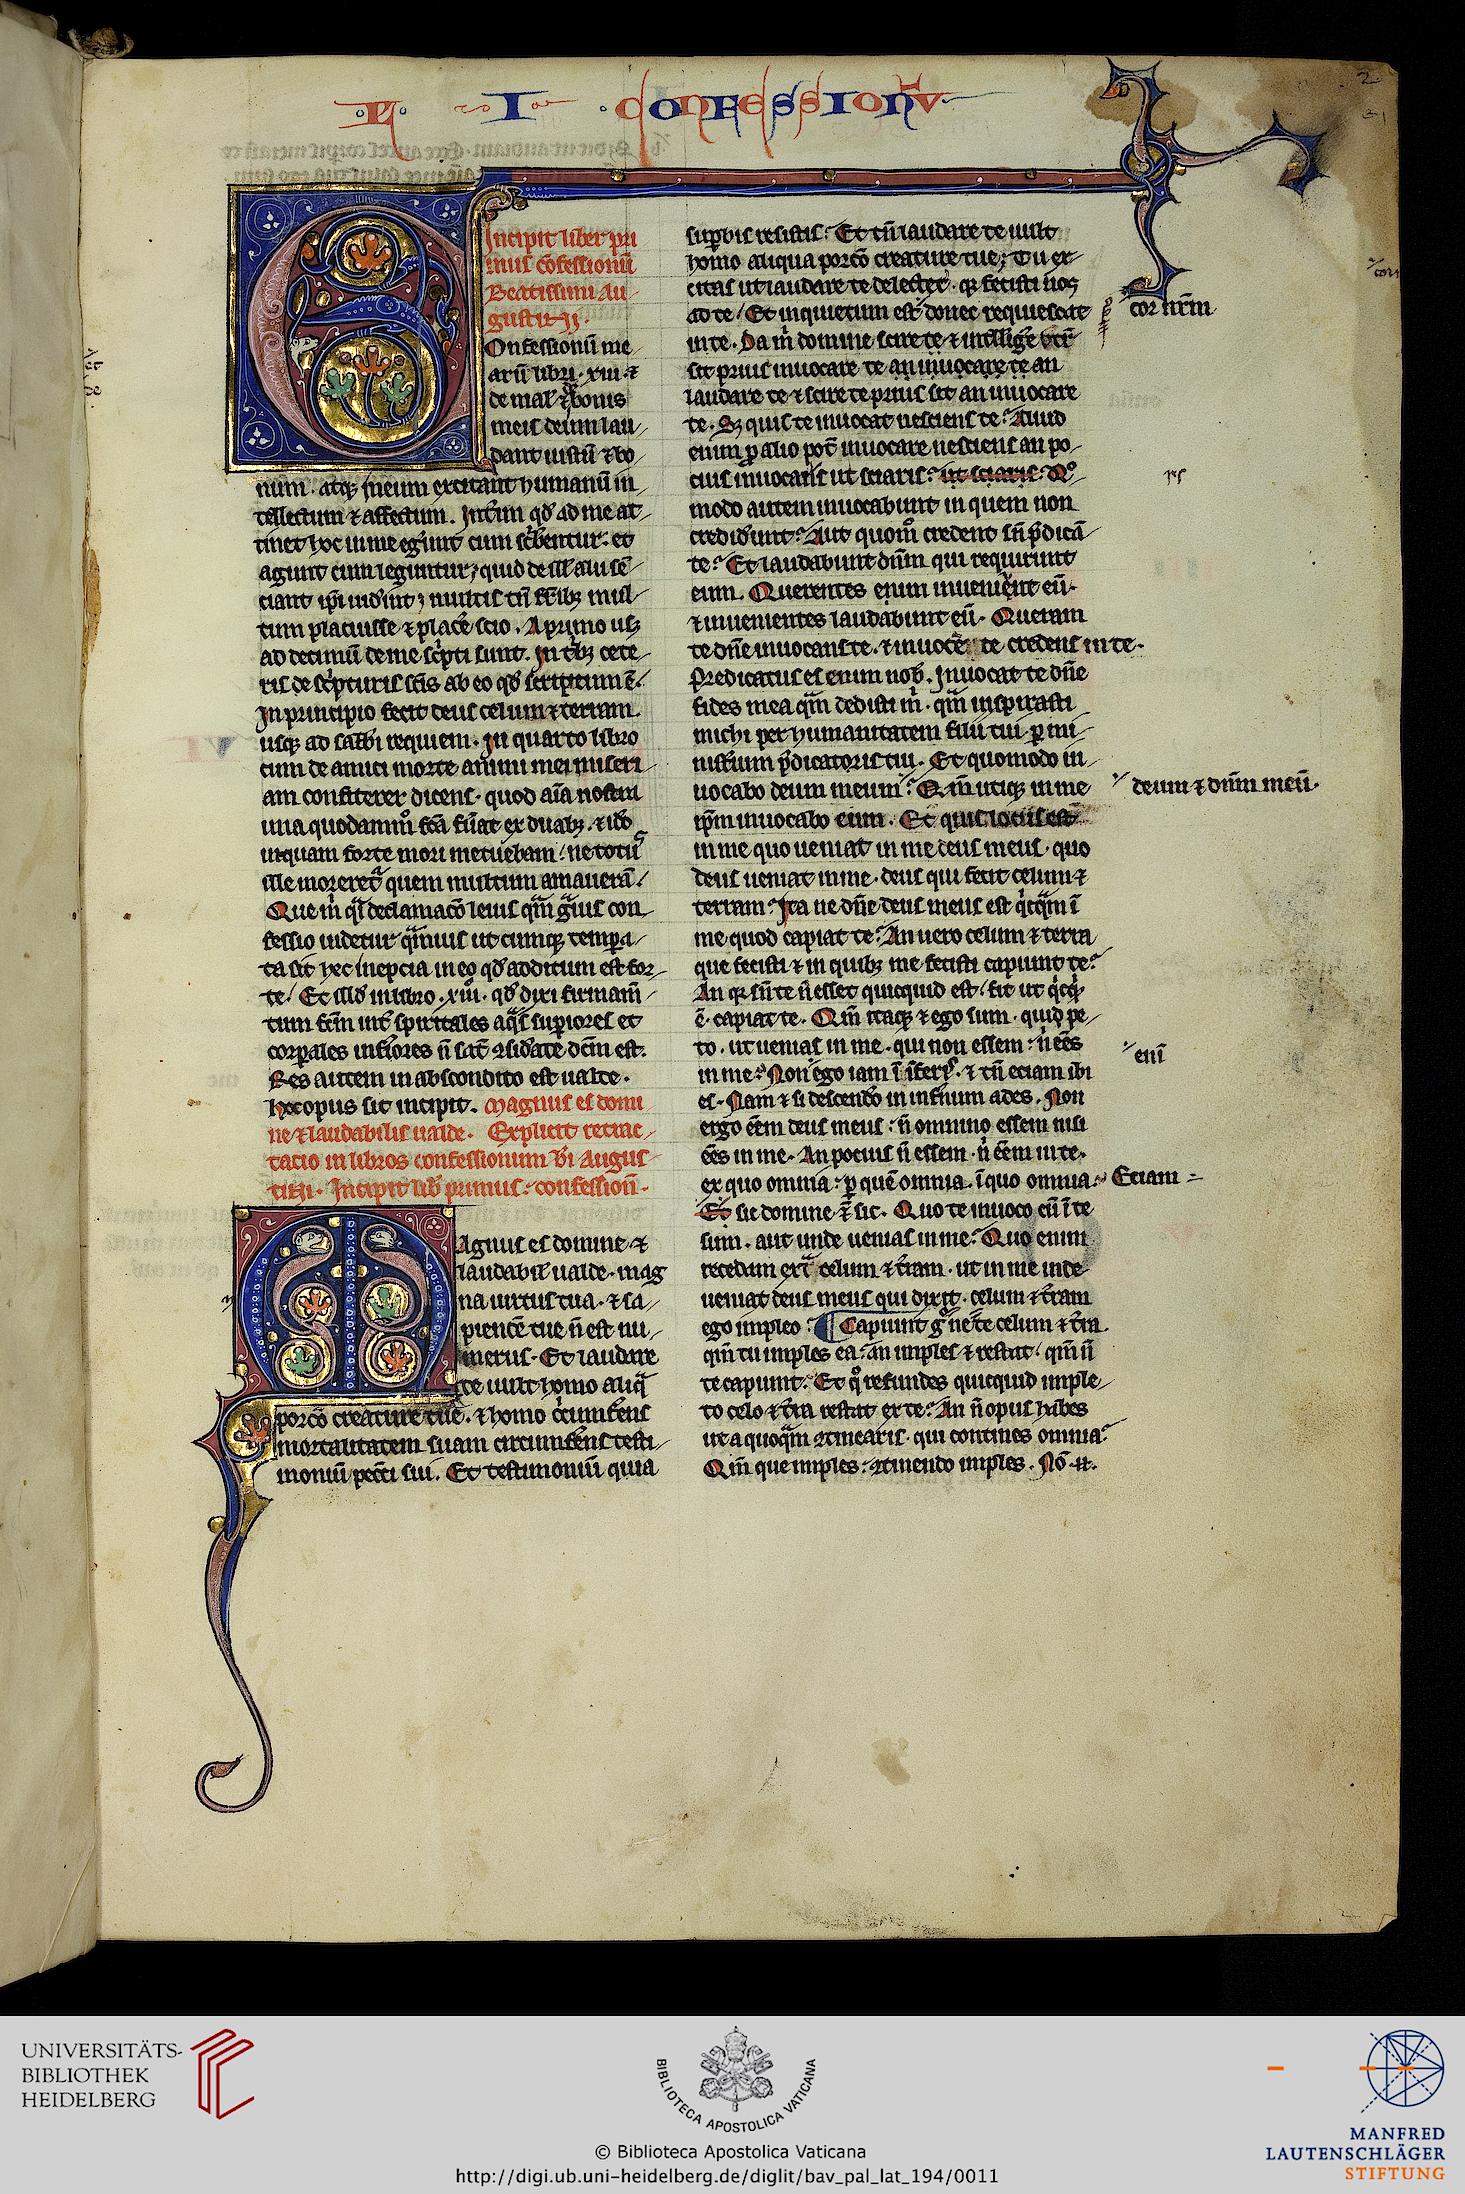 L I CONFESSIONV
2
Incipit liber pri
mus cōfessionū
Beatissimi Au
gustini
Onfessionū me
arū libri xiii &
de mal' & bonis
meis deum lau
dant iustū & bo
num. atq; in eum excitant humanū in
tellectum & affectum. Interim qd̄ ad me at
tinet hoc in me egerunt cum scriberentur. et
agunt cum leguntur; quid de ill' alii sē
ciant ipi uiderint; multis tn̄ fr̄ib; mul
tum placuisse & placere scio. A primo usq;
ad decimū de me scripti sunt. In trib; cete
ris de scripturis scīs ab eo qd̄ scriptum ē.
In principio fecit deus celum & terram.
usq; ad sabbi requiem. In quarto libro
cum de amici morte animi mei miseri
am confiterer dicens. quod aīa nostra
una quodammō fcā fuerat ex duab;. & iō
utquam forte mori metuebam. ne totus
ille moreretur quem multum amauerā.
Que m̄ q̄si declamacō leuis q̄m grauis con
fessio uidetur q̄muis utcumq; tempera
ta sit hec inepcia in eo qd̄ additum est for
te. Et illd̄ in libro. xiii. qd̄ dixi firmam
tum fcm̄ int̄ spiritales aq̄s superiores et
corporales inferiores n̄ sat̄ considerate dcm̄ est.
Res autem in abscondito est ualde.
hoc opus sic incipit. Magnus es domi
ne & laudabilis ualde. Explicit retrac
tacio in libros confessionum bi Augus
tini. Incipit lib' primus. confession.
Agnus es domine &
laudabil' ualde. mag
na uirtus tua. & sa
piencē tue n̄ est nu
merus. Et laudare
te uult homo aliq̄
porcō creature tue. & homo circumferens
mortalitatem suam circumferens testi
moniū peccati sui. Et testimoniū quia
superbis resistis. Et tn̄ laudare te uult
homo aliqua porcō creature tue; Tu ex
citas ut laudare te delectet. q; fecisti nos
ad te. Et inquietum est donec requiescat
in te. Da m̄ domine scire te & intelligere utrum
sit prius inuocare te an inuocare te an
laudare te & scire te prius sit an inuocare
te. Sz quis te inuocat nesciens te. Aliud
enim p alio pot̄ inuocare nesciens an po
cius inuocaris ut sciaris. ut sciaris. Qo
modo autem inuocabunt in quem non
crediderunt. Aut quom̄ credent sn̄ predicā
te. Et laudabunt dn̄m qui requirunt
eum. Querentes enim inuenient eū.
& inuenientes laudabunt eū. Queram
te dn̄e inuocans te. & inuocē te credens in te.
Predicatus es enim nob. Inuocat te dn̄e
fides mea q̄m dedisti m̄. q̄m inspirasti
michi per humanitatem filii tui. p mi
nisterium predicatoris tui. Et quomodo in
uocabo deum meum. Qm̄ utiq; in me
ipm̄ inuocabo eum. Et quis locus est
in me quo ueniat in me deus meus. quo
deus ueniat in me. deus qui fecit celum &
terram. Ita ne dn̄e deus meus est q̄cq̄m ī
me quod capiat te. An uero celum & terra
que fecisti & in quib; me fecisti capiunt te.
An q; sine te n̄ esset quicquid est. fit ut q̄cq̄d
ē. capiat te. Qm̄ itaq; & ego sum. quid pe
to. ut uenias in me. qui non essem. n̄ ēes
in me. Non ego iam ī inferis. & tn̄ eciam ibi
es. Nam & si descendo in infernum ades. Non
ergo ēem deus meus. n̄ omnino essem nisi
ēes in me. An pocius n̄ essem. n̄ ēem in te.
ex quo omnia. p quē omnia. ī quo omnia.
Et sic domine & sic. Quo te inuoco cū ī te
sum. aut unde uenias in me. Quo enim
recedam extra celum & terram. ut in me inde
ueniat deus meus qui dixit. celum & terram
ego impleo. Capiunt g̅ ne te celum & terra
qm̄ tu imples ea. an imples & restat. qm̄ n̄
te capiunt. Et q̊ refundes quicquid imple
to celo & terra restat ex te. An n̄ opus habes
ut a quoq̄m contineris. qui contines omnia.
Qm̄ que imples. continendo imples. Nō
cor nr̄m
deum & dn̄m meū.
enī
Eciam
UNIVERSITÄTS-
BIBLIOTHEK
HEIDELBERG
BIBLIOTECA APOSTOLICA VATICANA
© Biblioteca Apostolica Vaticana
http://digi.ub.uni-heidelberg.de/diglit/bav_pal_lat_194/0011
MANFRED
LAUTENSCHLÄGER
STIFTUNG